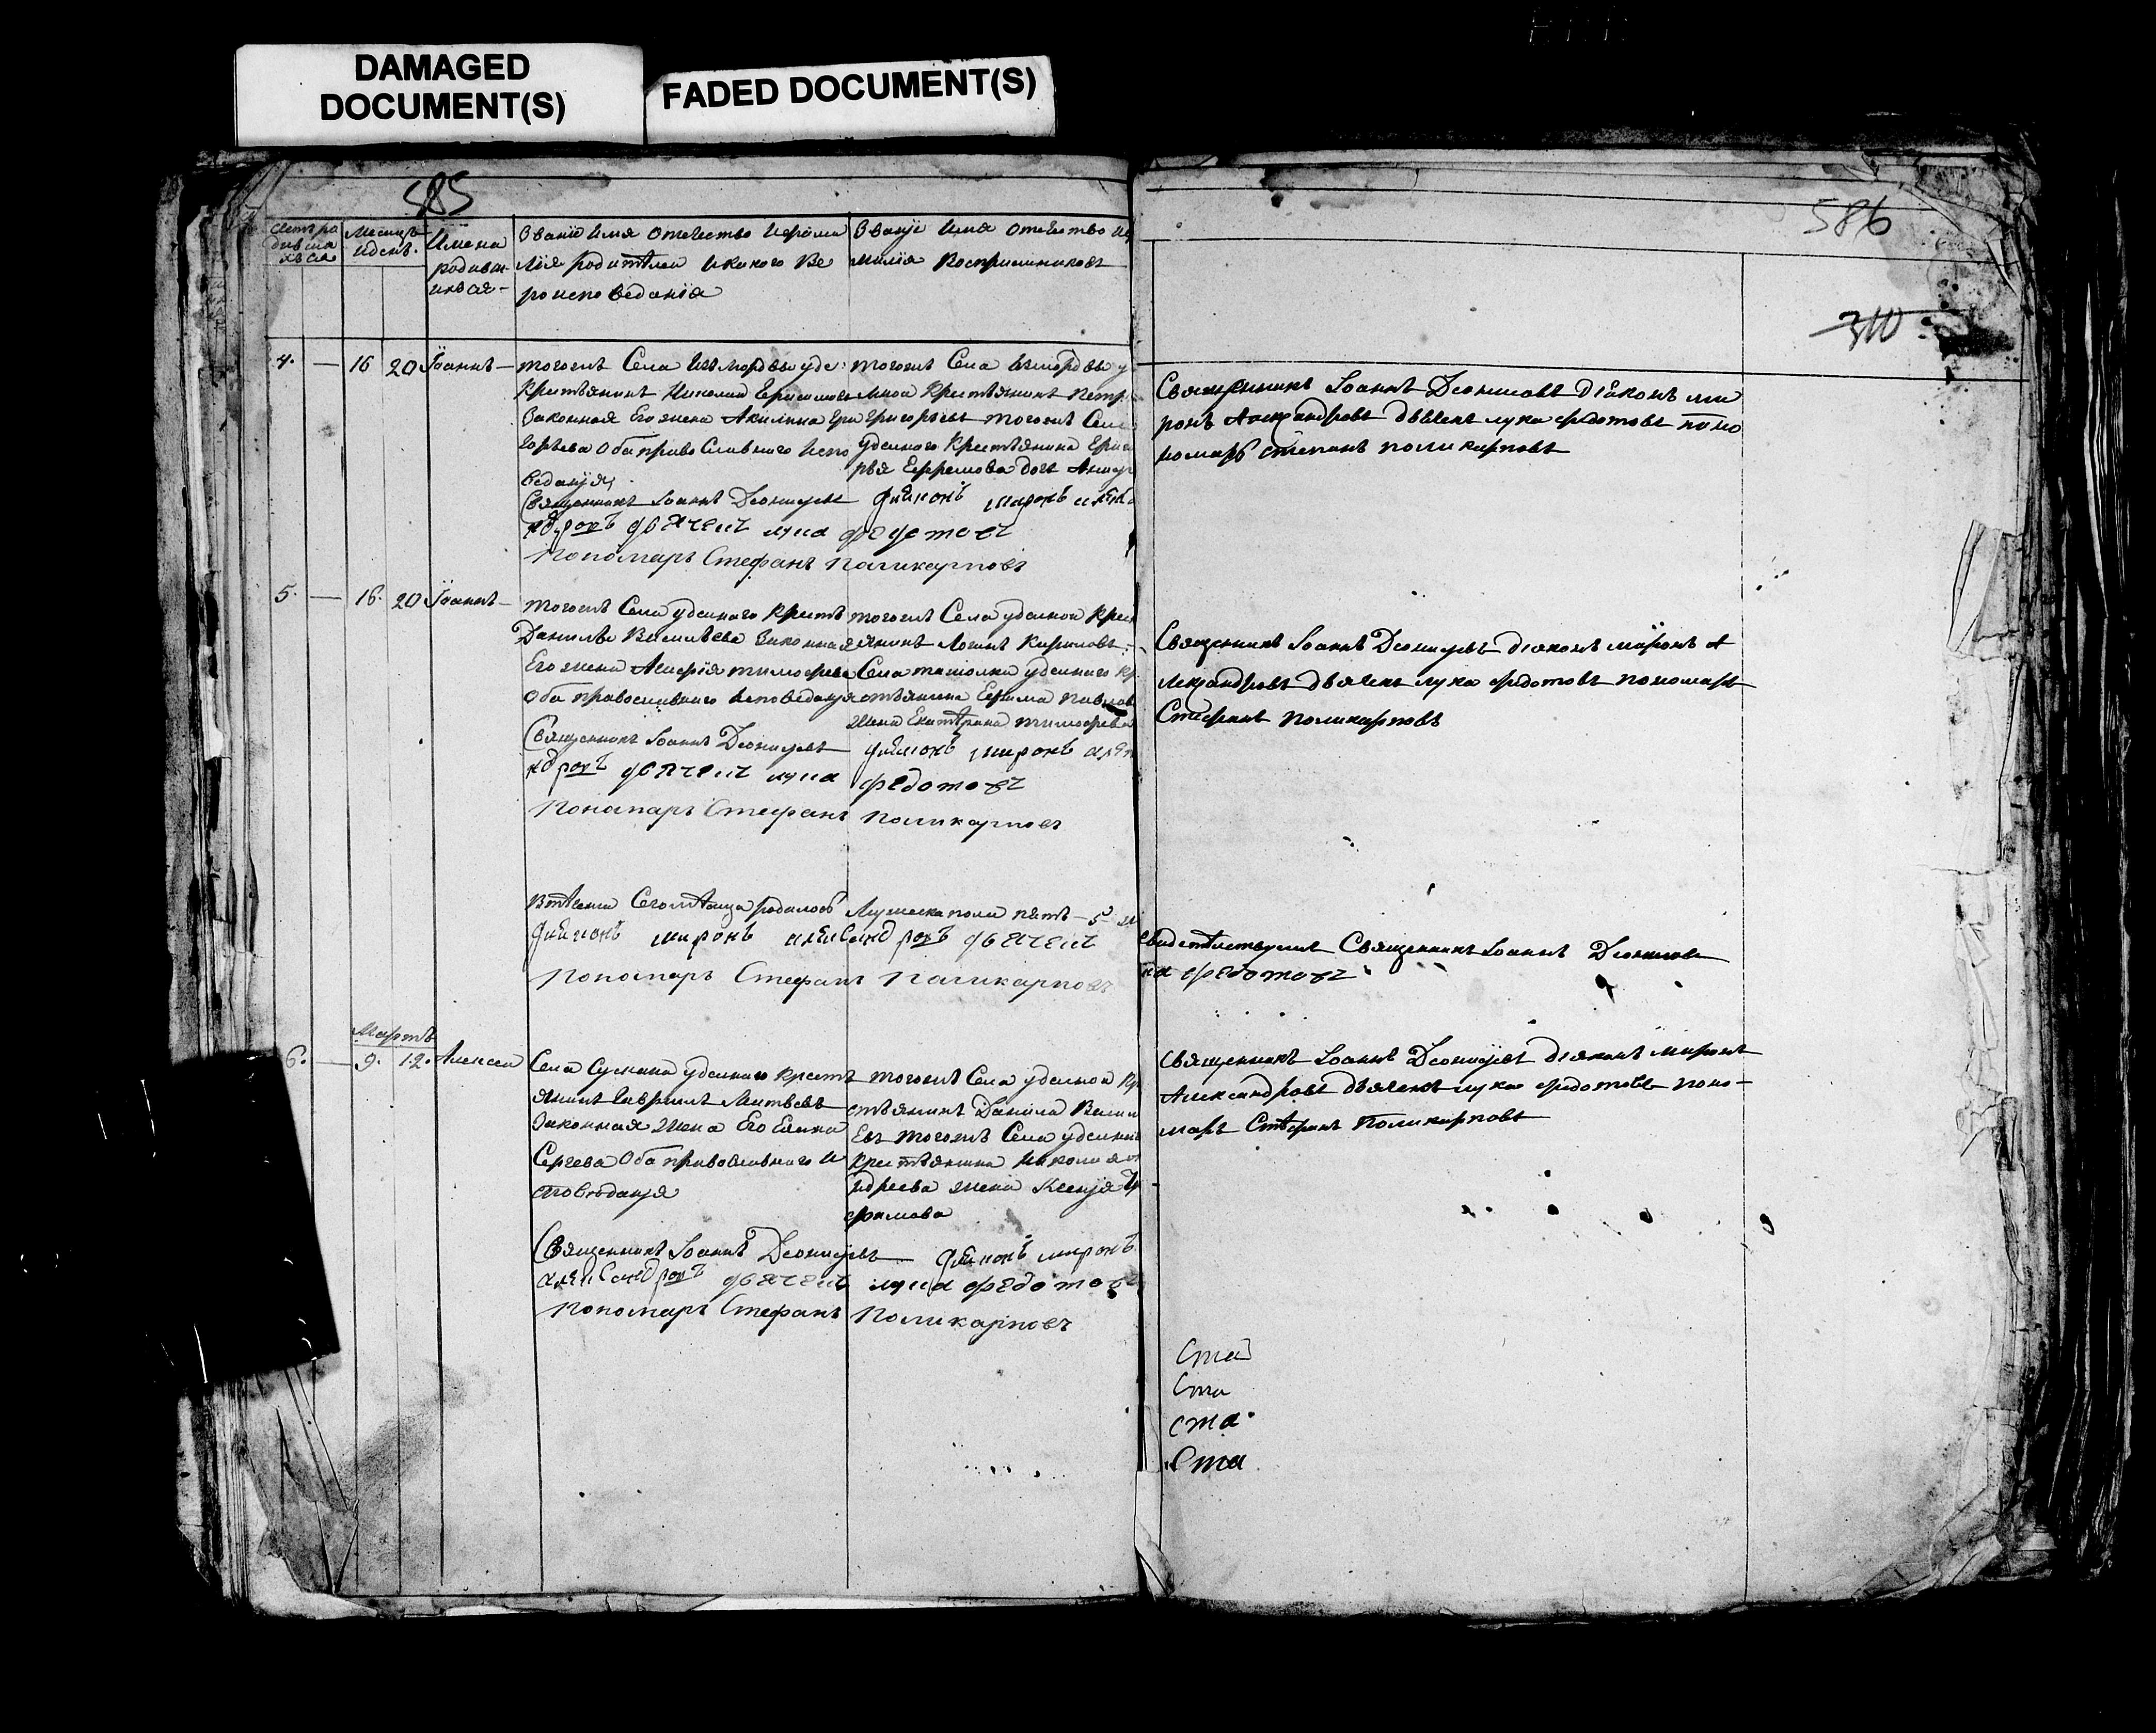 DAMAGED
DOCUMENT(S)
FADED DOCUMENT(S)
585
Месяцъ
и день.
Имена
родивш
ихся
Званіе Имя Отечество Ифами
лія родителей и какого Ве
роисповеданія
Званіе Имя Отечество
милія Воспріемниковъ
4. — 16 20 Іоаннъ —
тогожъ Села
Крестьянинъ Николай
Законная Его жена Акилина Гри
горьева Оба православнаго Испо
веданія
тогожъ Села
Крестьянинъ Петр
Григорьевъ тогожъ Села
удельного Крестьянина Григо
рья Ефремова дочь
Священникъ Іоаннъ Деонисіевъ Діяконъ миронъ алекса
ндровъ дьячекъ лука федотовъ
Пономарь Стефанъ Поликарповъ
5. — 16. 20 Іоаннъ —
тогожъ Села удельного Кресть
Данилы Васильева Законная
Его жена Агафія тимофеева
Оба православнаго исповеданія
тогожъ Села удельной Крес
янинъ Логинъ Кириловъ
Села ташолки удельного кр
стьянина Ефима
жена Екатерина тимофеева
Священникъ Іоаннъ Деонисіевъ Діяконъ миронъ алекса
ндровъ дьячекъ лука федотовъ
Пономарь Стефанъ Поликарповъ
Втеченіи Сего месяца родилось Мужеска пола пять — 5
Діяконъ миронъ александровъ дьячекъ
Пономарь Стефанъ Поликарповъ
Мартъ
6. — 9. 12. Алексей
Села Сускана удельного кресть
янинъ Гаврилъ Матвеевъ
Законная жена Его Елена
Сергеева Оба православнаго И
споведанія
тогожъ Села удельной Кр
стьянинъ Данила Васил
Евъ тогожъ Села удельнаго
Крестьянина Николая
ндреева жена Ксенія
фимова
Священникъ Іоаннъ Деонисіевъ — Діяконъ миронъ
александровъ дьячекъ лука федотовъ
Пономарь Стефанъ Поликарповъ
586
310
Священникъ Іоаннъ Деонисіевъ діаконъ ми
ронъ Александровъ дьячекъ лука федотовъ поно
номарь степанъ поликарповъ
Священникъ Іоаннъ Деонисіевъ діяконъ миронъ А
лександровъ дьячекъ лука федотовъ пономарь
Стефанъ Поликарповъ
свидетельствуемъ Священникъ Іоаннъ Деонисіевъ
ка федотовъ
Священникъ Іоаннъ Деонисіевъ діяконъ миронъ
Александровъ дьячекъ лука федотовъ поно-
марь Стефанъ Поликарповъ
Ста
Ста
Ста
Ста